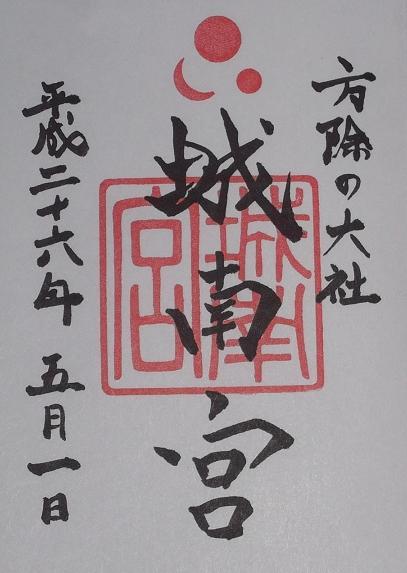 方除の大社
城南宮
城南宮
平成二十六年 五月一日